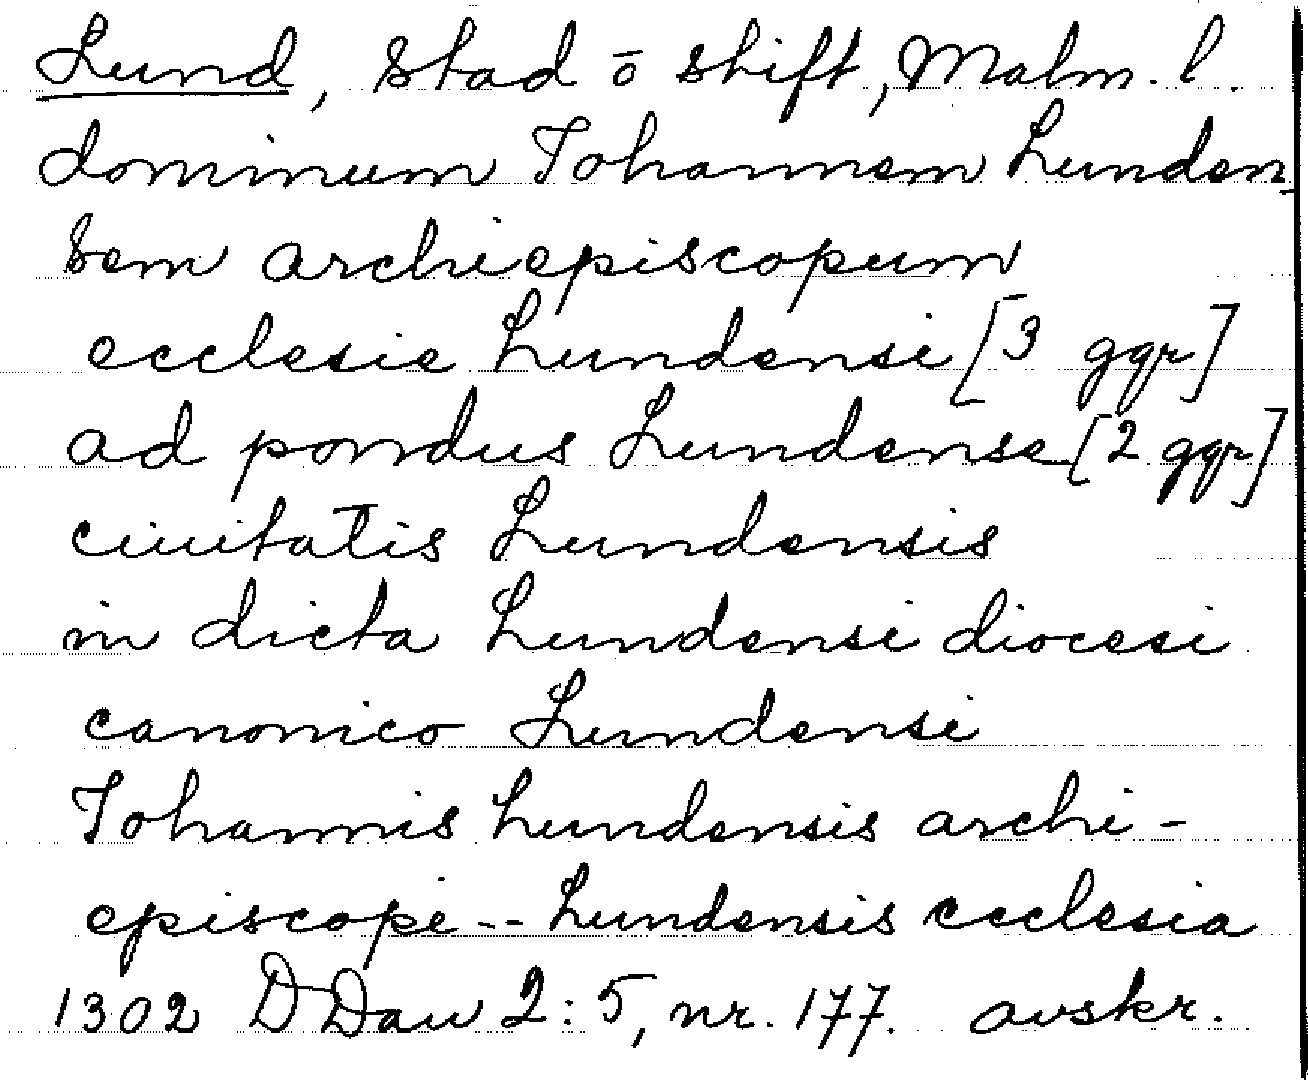 Lund, stad ō stift, Malm. l.
dominum Johannem Lunden-
sem archiepiscopum
ecclesie Lundensi [3 ggr]
ad pondus Lundense [2 ggr]
ciuitatis Lundensis
in dicta Lundensi diocesi
canonico Lundensi
Johannis Lundensis archi-
episcopi -- Lundensis ecclesia
1302 DDan 2:5, nr. 177. avskr.